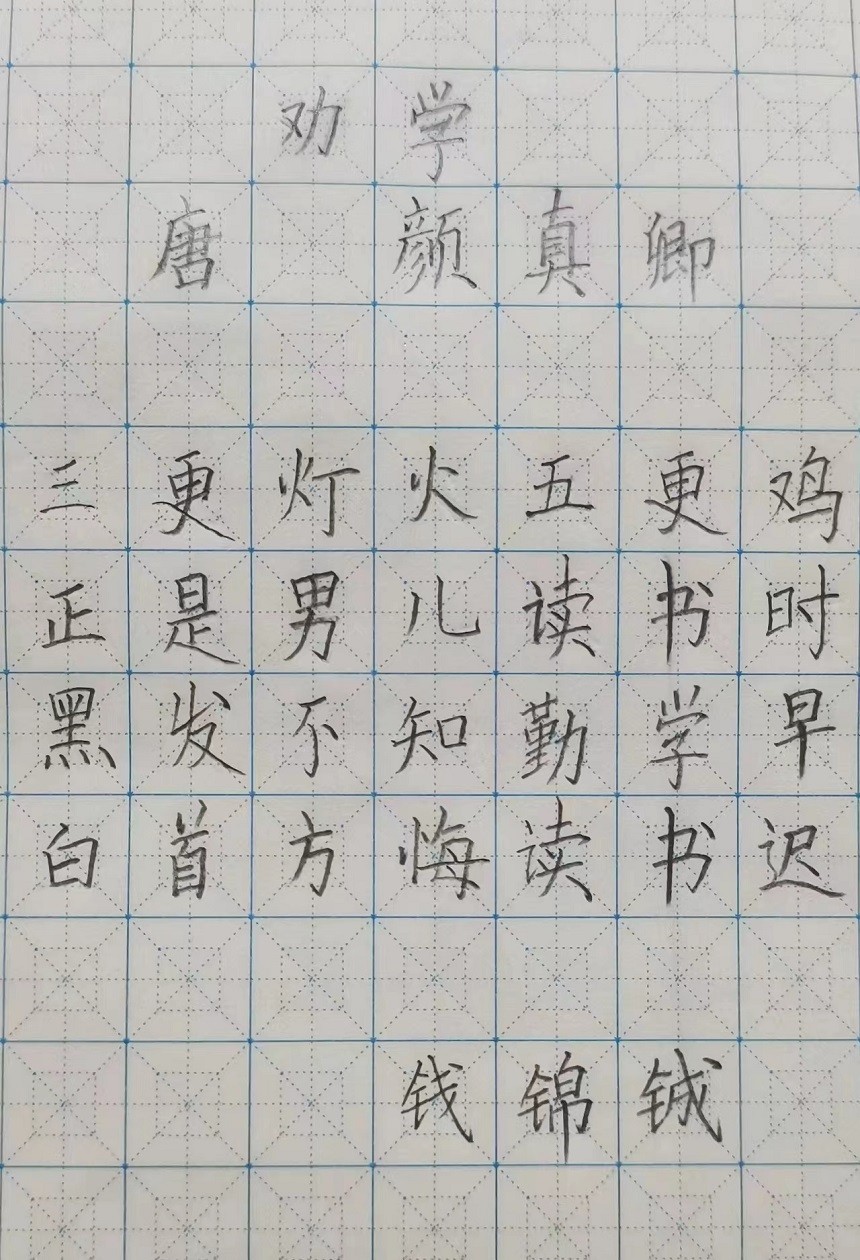 劝学
唐 颜真卿
三更灯火五更鸡
正是男儿读书时
黑发不知勤学早
白首方悔读书迟
钱锦铖